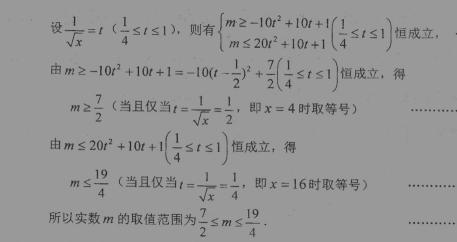 设 1/√x = t (1/4 ≤ t ≤ 1), 则有 { m ≥ -10t² + 10t + 1 (1/4 ≤ t ≤ 1) 恒成立,
m ≤ 20t² + 10t + 1
由 m ≥ -10t² + 10t + 1 = -10(t - 1/2)² + 7/2 (1/4 ≤ t ≤ 1) 恒成立, 得
m ≥ 7/2 (当且仅当 t = 1/√x = 1/2, 即 x = 4 时取等号) …………
由 m ≤ 20t² + 10t + 1 (1/4 ≤ t ≤ 1) 恒成立, 得
m ≤ 19/4 (当且仅当 t = 1/√x = 1/4, 即 x = 16 时取等号) …………
所以实数 m 的取值范围为 7/2 ≤ m ≤ 19/4 . …………